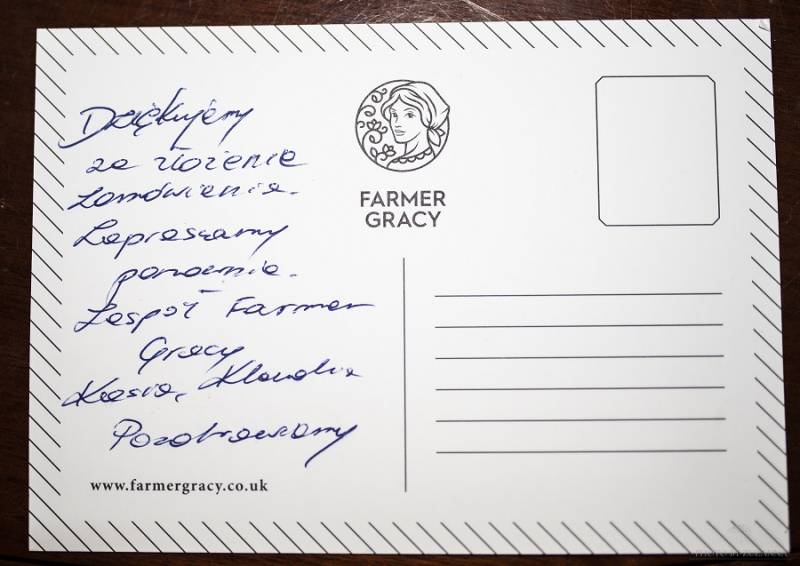 Dziękujemy
za złożenie
zamówienia.
Zapraszamy
ponownie.
Zespół Farmer
Gracy
Kasia, Klaudia
Pozdrawiamy
www.farmergracy.co.uk
FARMER
GRACY